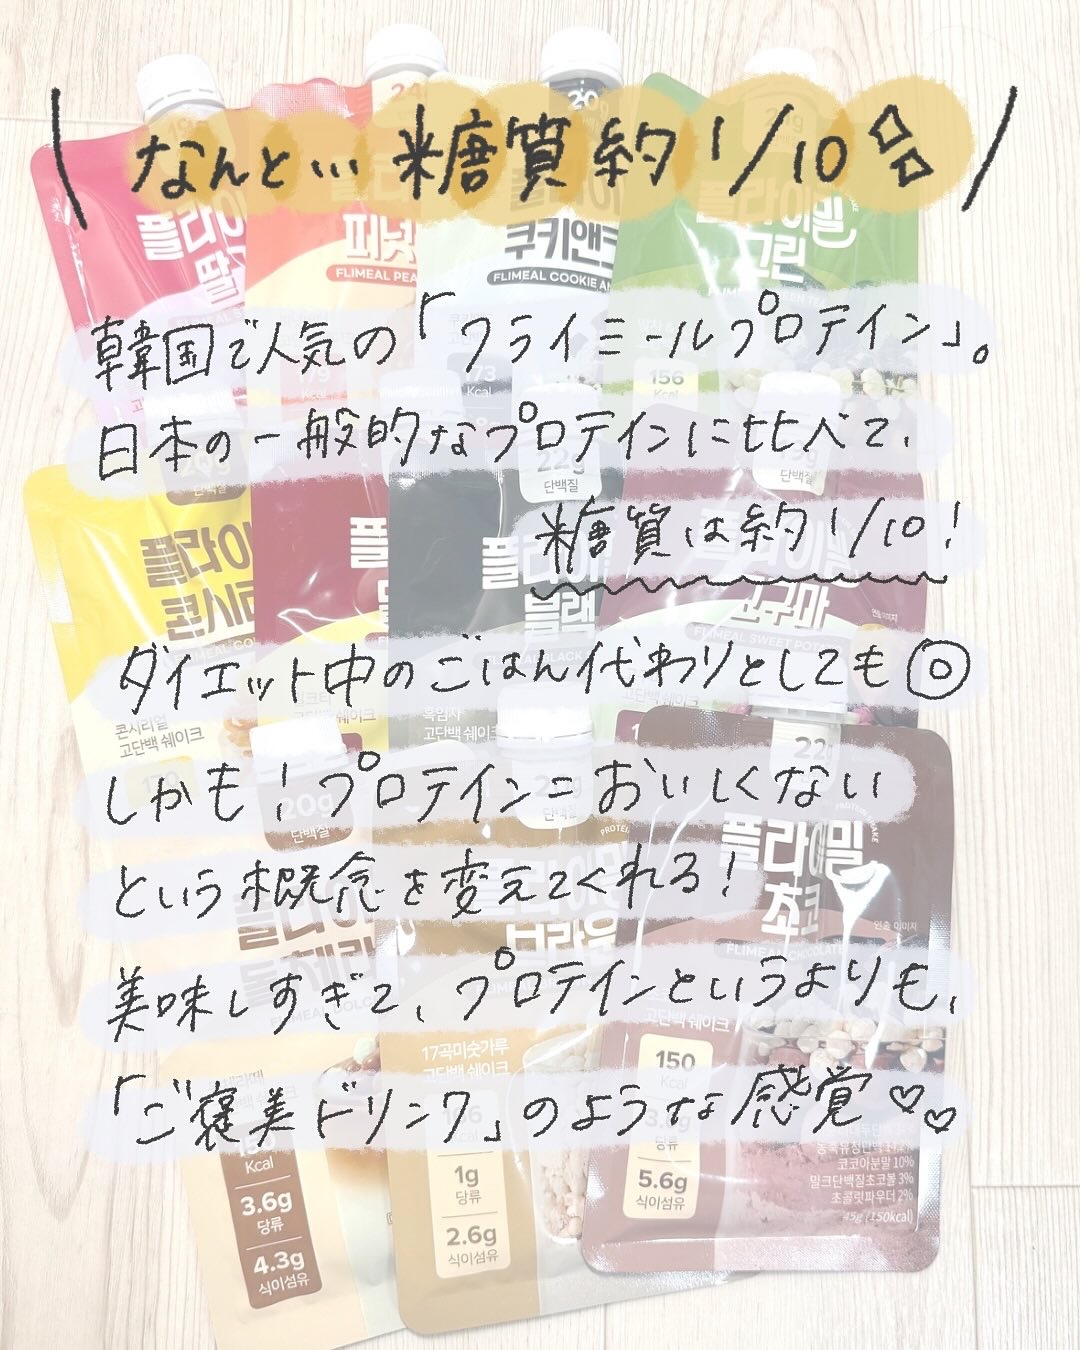 なんと… 糖質約1/10
韓国で人気の「フライミールプロテイン」。
日本の一般的なプロテインに比べて、
糖質は約1/10！
ダイエット中のごはん代わりとしても◎
しかも！プロテイン＝おいしくない
という概念を変えてくれる！
美味しすぎて、プロテインというよりも、
「ご褒美ドリンク」のような感覚♡♡
FLIMEAL PEA
쿠키앤크
FLIMEAL COOKIE AN
그린
156
Kcal
22g
단백질
플라이
콘시리
콘시리얼
고단백 쉐이크
블랙
흑임자
고단백 쉐이크
20g
단백질
22g
플라이밀
초코
연출 이미지
17곡미숫가루
고단백 쉐이크
Kcal
3.6g
당류
4.3g
식이섬유
1g
당류
2.6g
식이섬유
고단백 쉐이크
150
Kcal
당류
5.6g
식이섬유
코코아분말 10%
밀크단백질초코볼 3%
초콜릿파우더 2%
45g (150kcal)